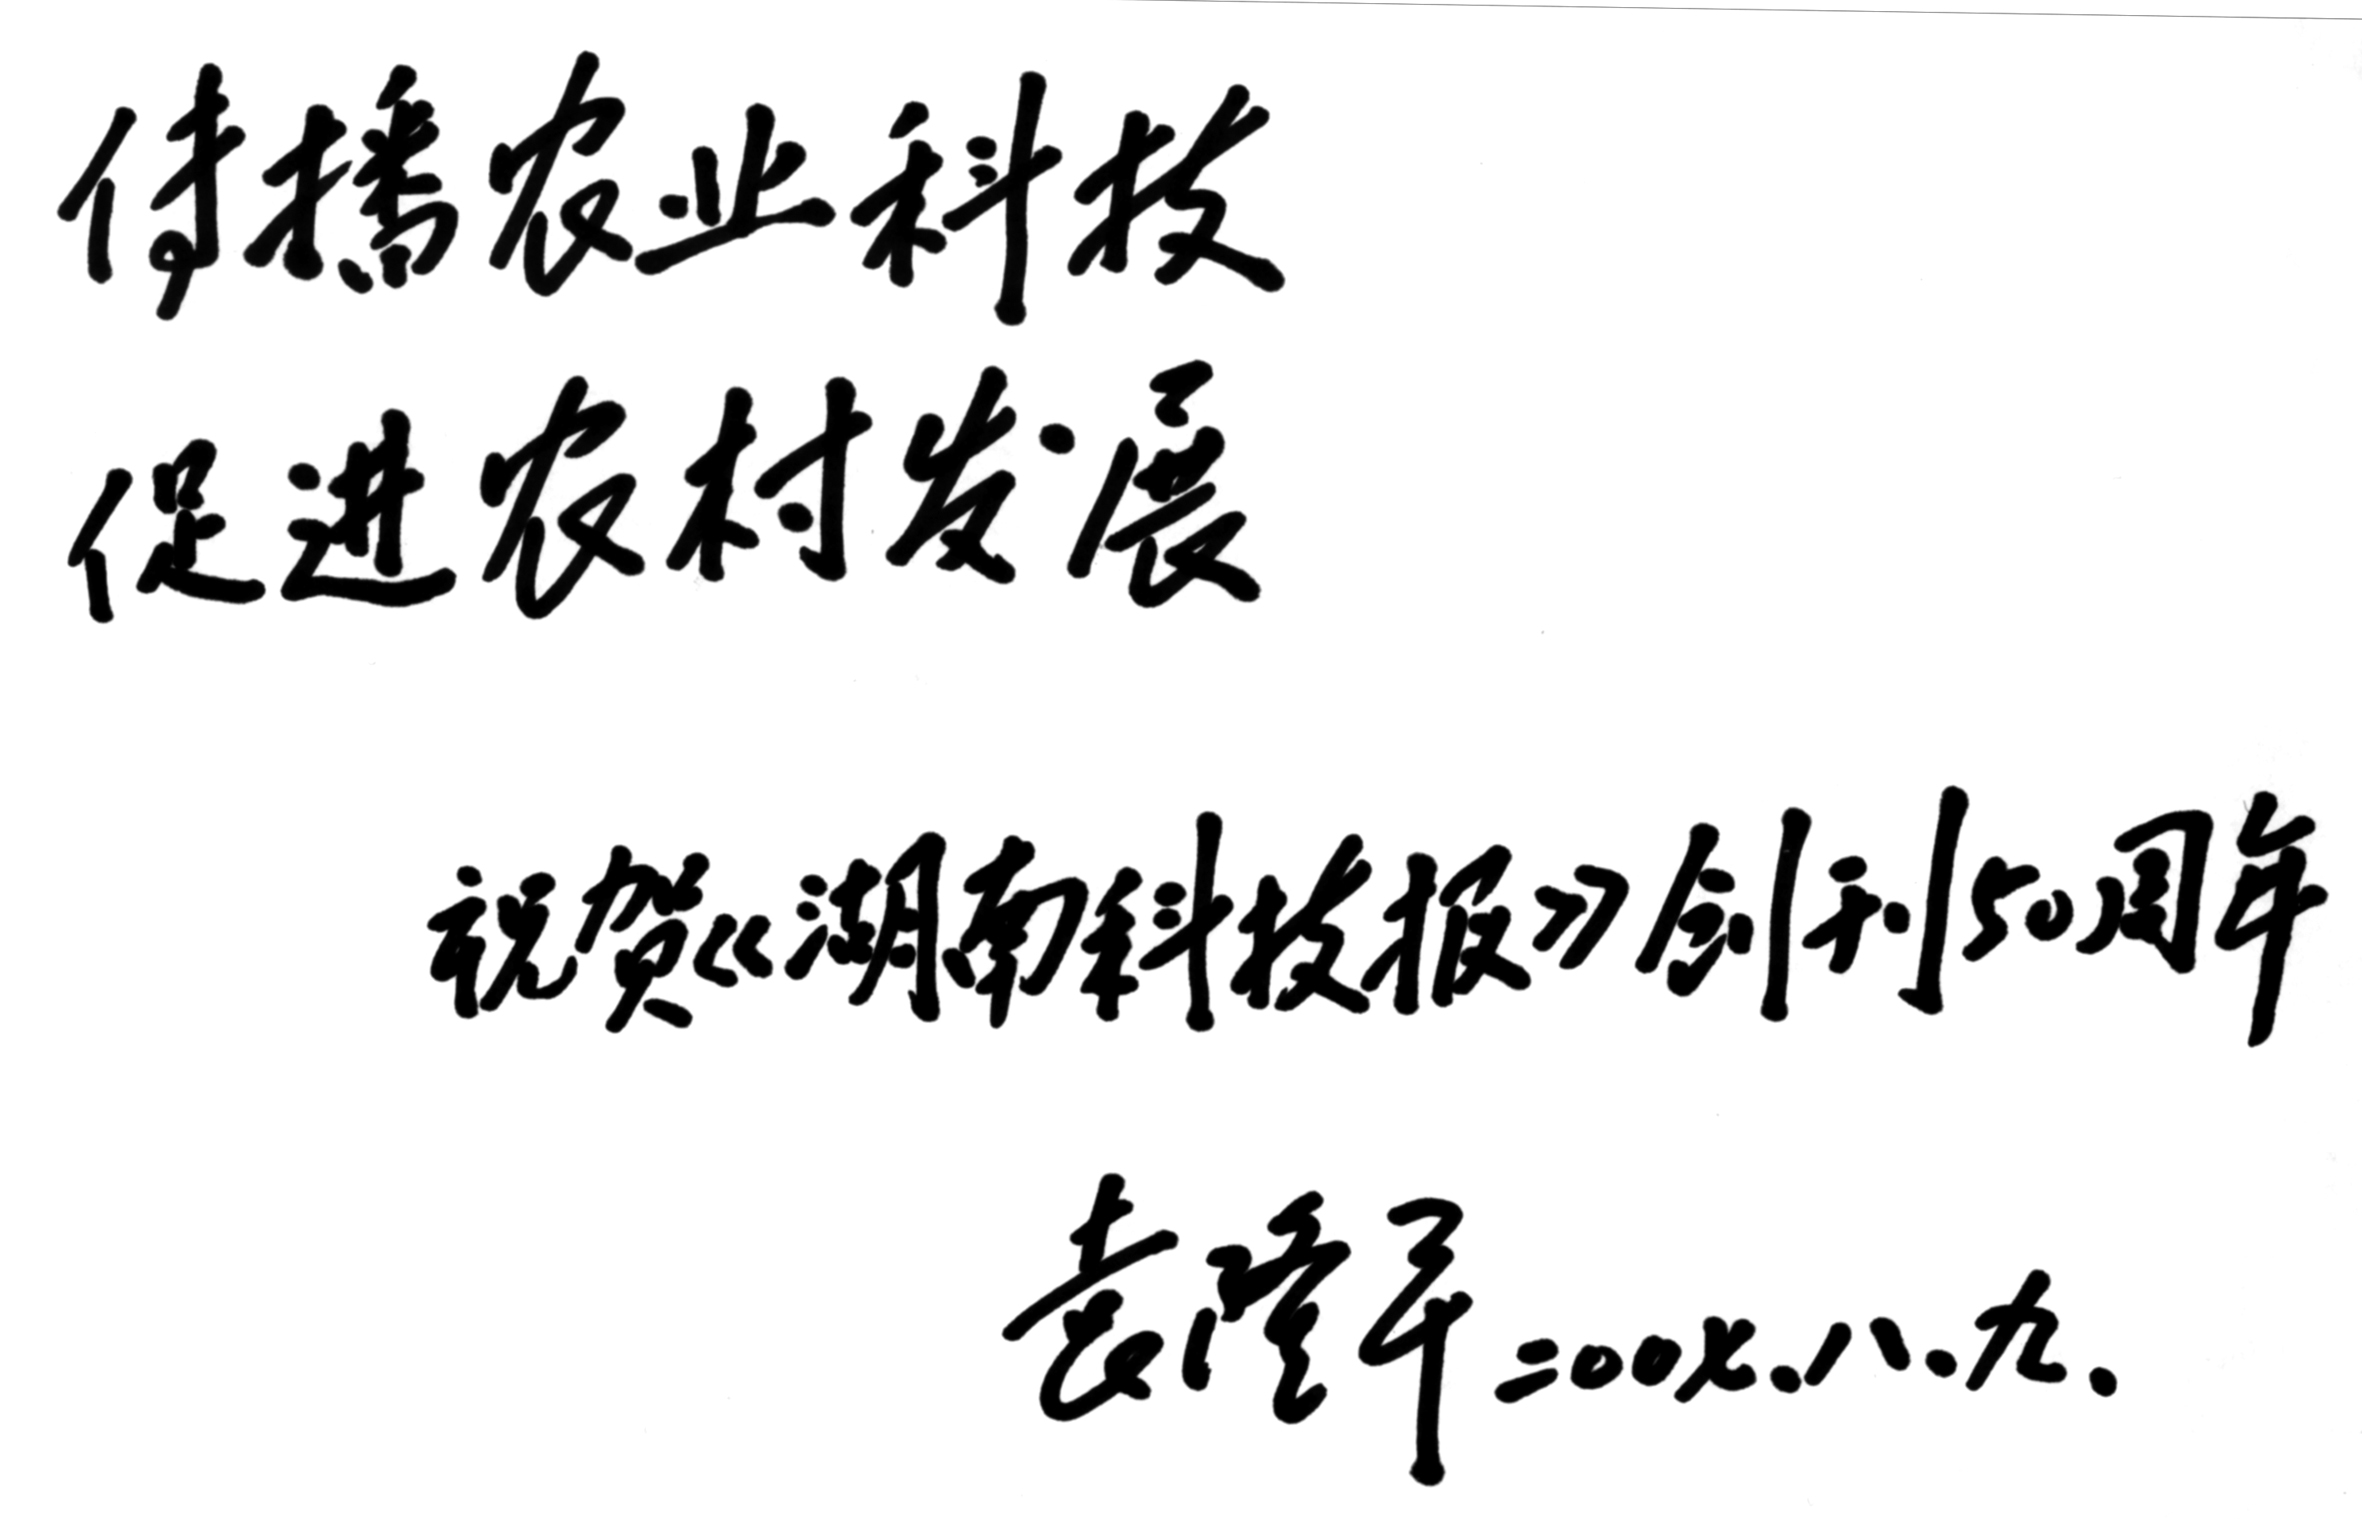 传播农业科技
促进农村发展
祝贺《湖南科技报》创刊50周年
袁隆平 二00七.八.九.